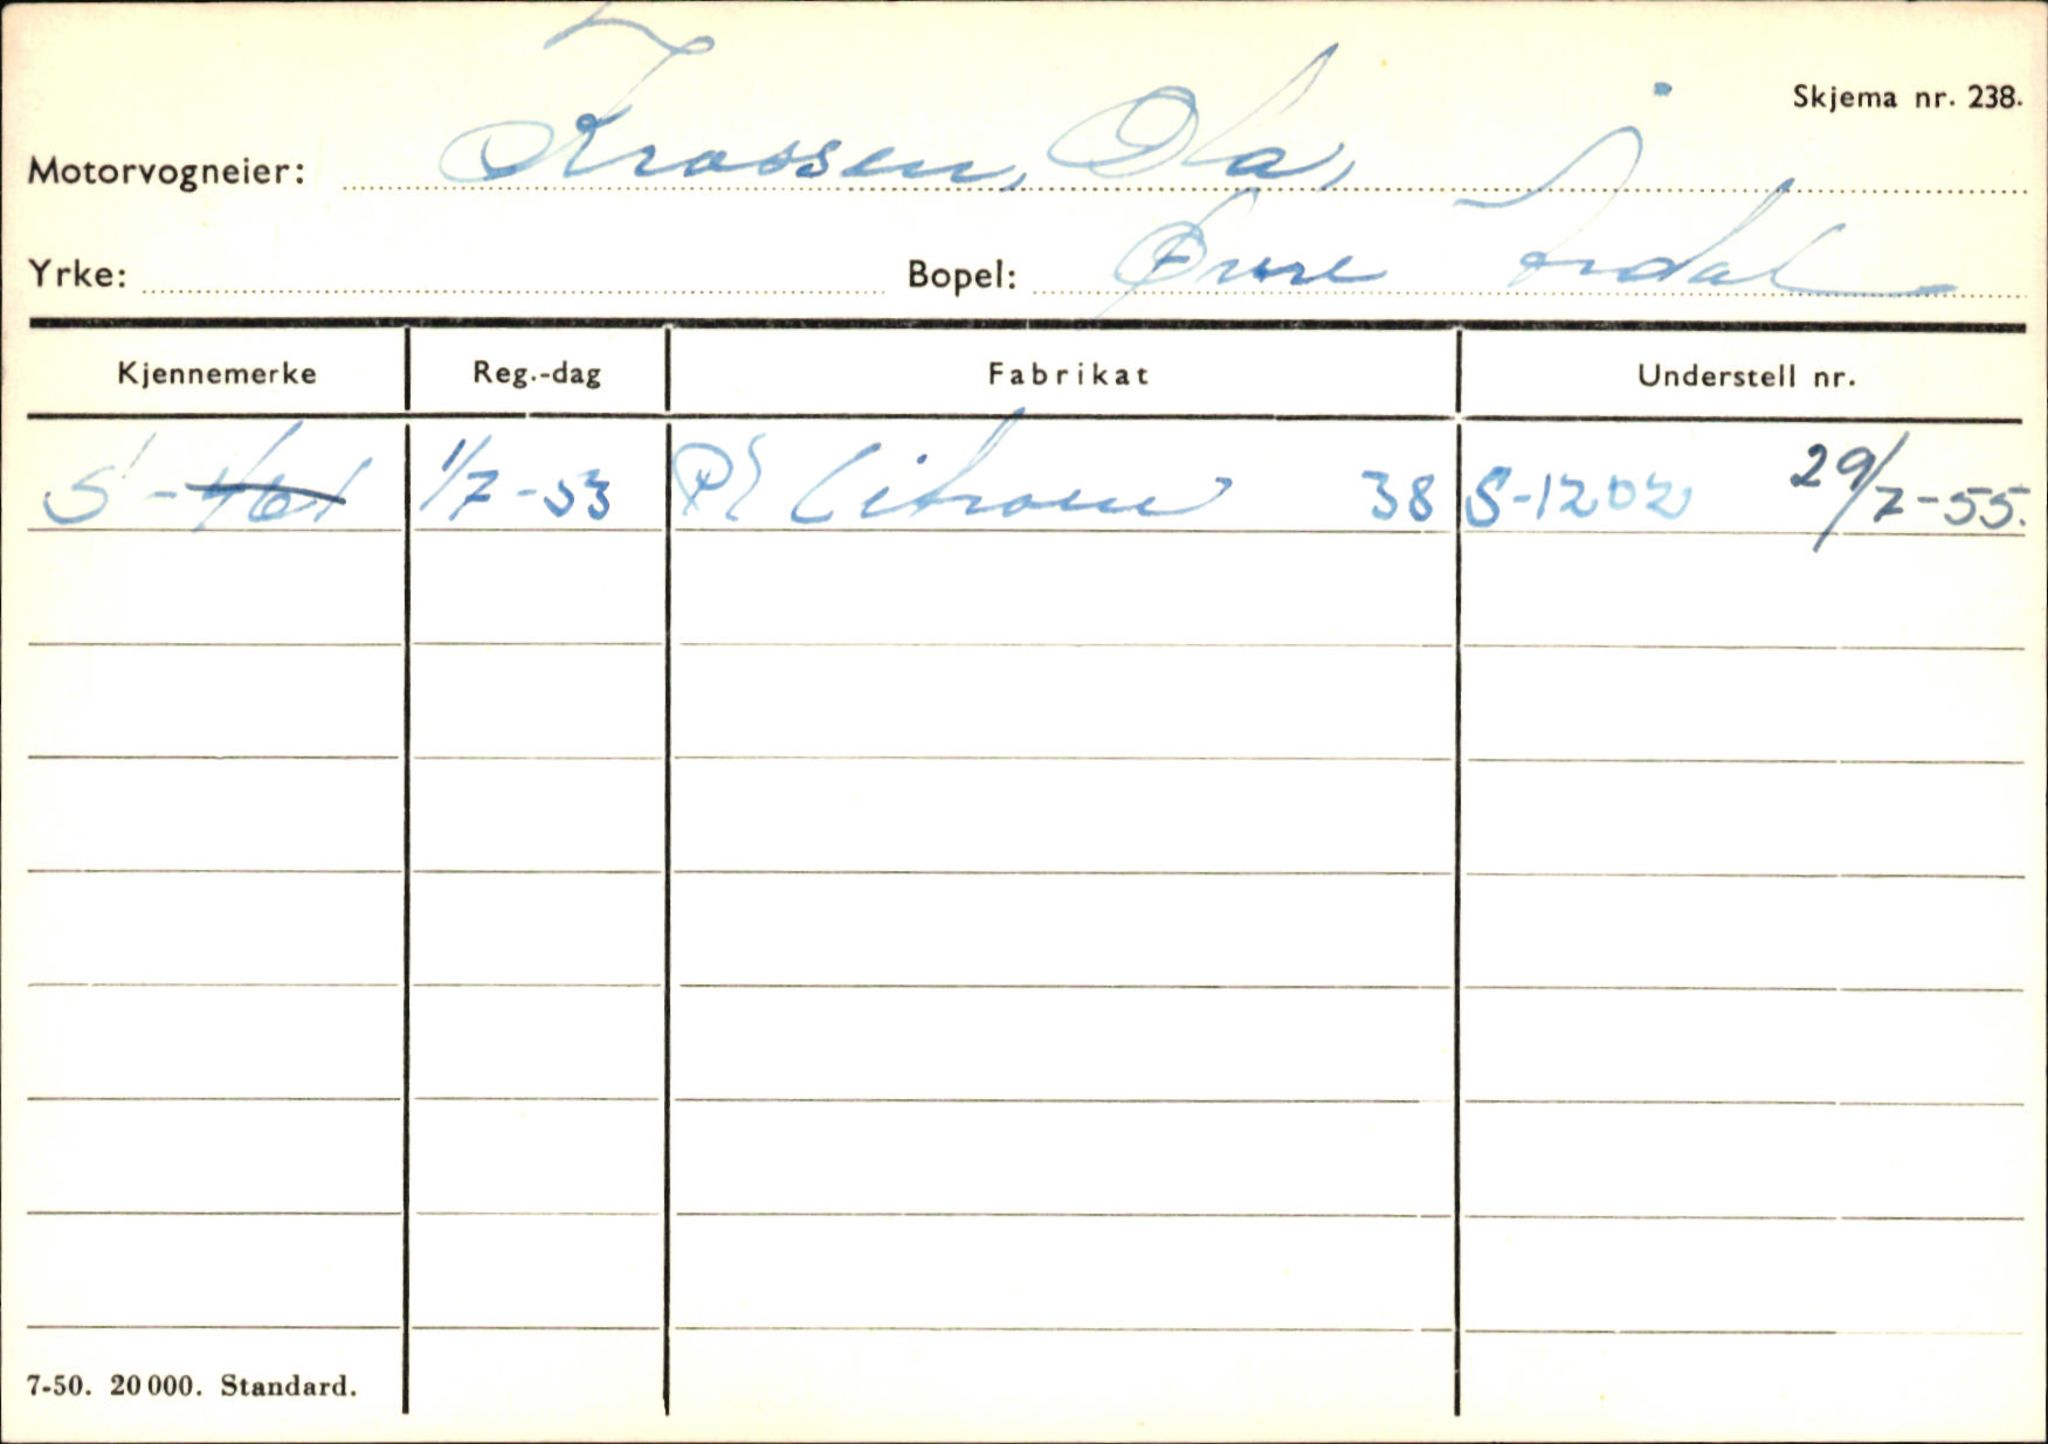 Skjema nr. 238.
Motorvogneier: Krossen, Ola,
Yrke: Bopel: Øvre Årdal
Kjennemerke Reg.-dag Fabrikat Understell nr.
S-461 1/7-53 Pf Citroen 38 S-1202 29/7-55.
7-50. 20 000. Standard.